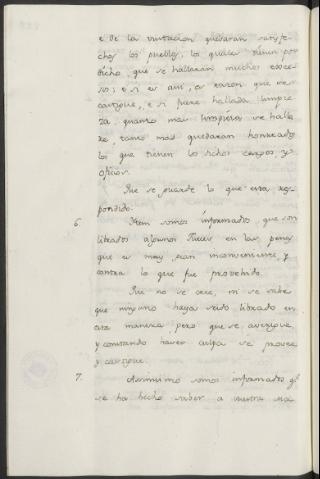 e de la visitacion quedaran satisfe-
chos los pueblos, los quales tienen por
dicho, que se hallaran muchos exce-
sos; e si es ansi, es razon que se
castigue, e si fuere hallada limpie
za, quanto mas limpieza se halla
re, tanto mas quedaran honrados
los que tienen los dichos cargos, y
oficios.
Que se guarde lo que esta res-
pondido.
6. Item somos informados, que son
librados algunos Jueces en las penas
que es muy gran inconveniente, y
contra lo que fue provehido.
Que no se cree, ni se sabe
que ninguno haya seido librado en
esta manera, pero que se averigue,
y constando haver culpa se provea
y castigue.
7. Assimismo somos informados q.e
se ha hecho saber a vuestra Ma-